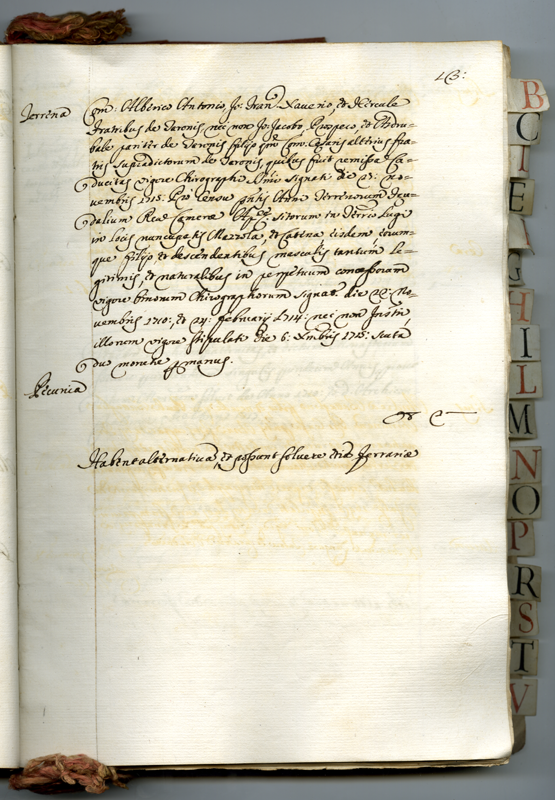 43:
Terrena
Com: Alberico Antonio, Jo: Fran: Xaverio, et Hercule
Fratribus de Zeronis nec non Jo: Jacobo, Pompeo, et
bale pariter de Zeronis filijs qm Com: Cesaris alterius fra-
tris supradictorum de Zeronis, quibus fuit remissa Ca-
ducitas vigore Chirographi signati die 23: No-
vembris 1715: Pro Censu Terrenorum Feu-
dalium Rev Camerae sitorum in Territo Lugi
in locis nuncupatis Mezzola, et Catena eisdem eorum-
que filijs, et descendentibus masculis tantum le-
gitimis, et naturalibus in perpetuum concessorum
vigore binorum Chirographorum signat: die 22: No-
vembris 1710: et 24: februarij 1714: nec non Instru
vigore stipulati die 6: Xmbris 1715: Scuta
duo monetae
Pecunia
Habent alternativa, et possunt solvere Ferrariae
B
C
E
G
H
I
L
M
N
O
P
R
S
T
V